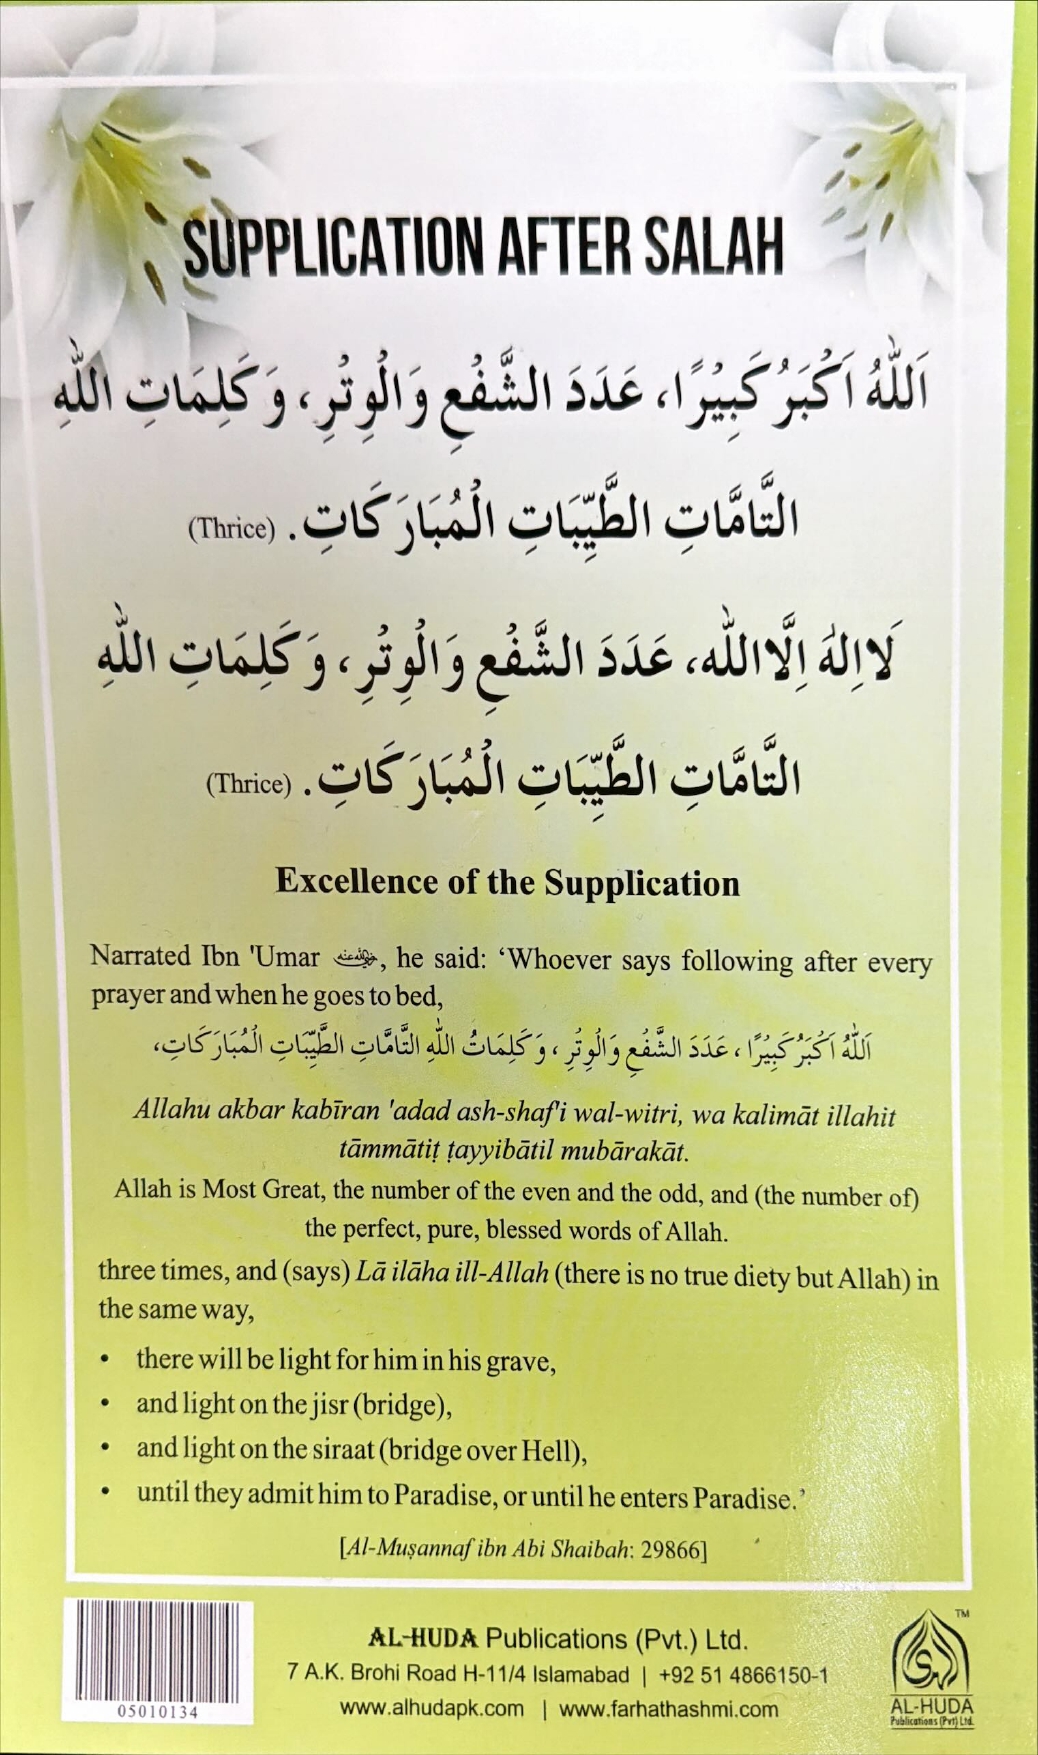 SUPPLICATION AFTER SALAH
اَللّٰهُ اَكْبَرُ كَبِيْرًا، عَدَدَ الشَّفْعِ وَالْوِتْرِ، وَكَلِمَاتِ اللّٰهِ
التَّامَّاتِ الطَّيِّبَاتِ الْمُبَارَكَاتِ. (Thrice)
لَا اِلٰهَ اِلَّا اللّٰه، عَدَدَ الشَّفْعِ وَالْوِتْرِ، وَكَلِمَاتِ اللّٰهِ
التَّامَّاتِ الطَّيِّبَاتِ الْمُبَارَكَاتِ. (Thrice)
Excellence of the Supplication
Narrated Ibn 'Umar رضي الله عنه, he said: ‘Whoever says following after every
prayer and when he goes to bed,
اَللّٰهُ اَكْبَرُ كَبِيْرًا، عَدَدَ الشَّفْعِ وَالْوِتْرِ، وَكَلِمَاتُ اللّٰهِ التَّامَّاتِ الطَّيِّبَاتِ الْمُبَارَكَاتِ،
Allahu akbar kabīran 'adad ash-shaf'i wal-witri, wa kalimāt illahit
tāmmātiṭ ṭayyibātil mubārakāt.
Allah is Most Great, the number of the even and the odd, and (the number of)
the perfect, pure, blessed words of Allah.
three times, and (says) Lā ilāha ill-Allah (there is no true diety but Allah) in
the same way,
• there will be light for him in his grave,
• and light on the jisr (bridge),
• and light on the siraat (bridge over Hell),
• until they admit him to Paradise, or until he enters Paradise.’
[Al-Muṣannaf ibn Abi Shaibah: 29866]
05010134
AL-HUDA Publications (Pvt.) Ltd.
7 A.K. Brohi Road H-11/4 Islamabad | +92 51 4866150-1
www.alhudapk.com | www.farhathashmi.com
TM
الهدى
AL-HUDA
Publications (Pvt) Ltd.